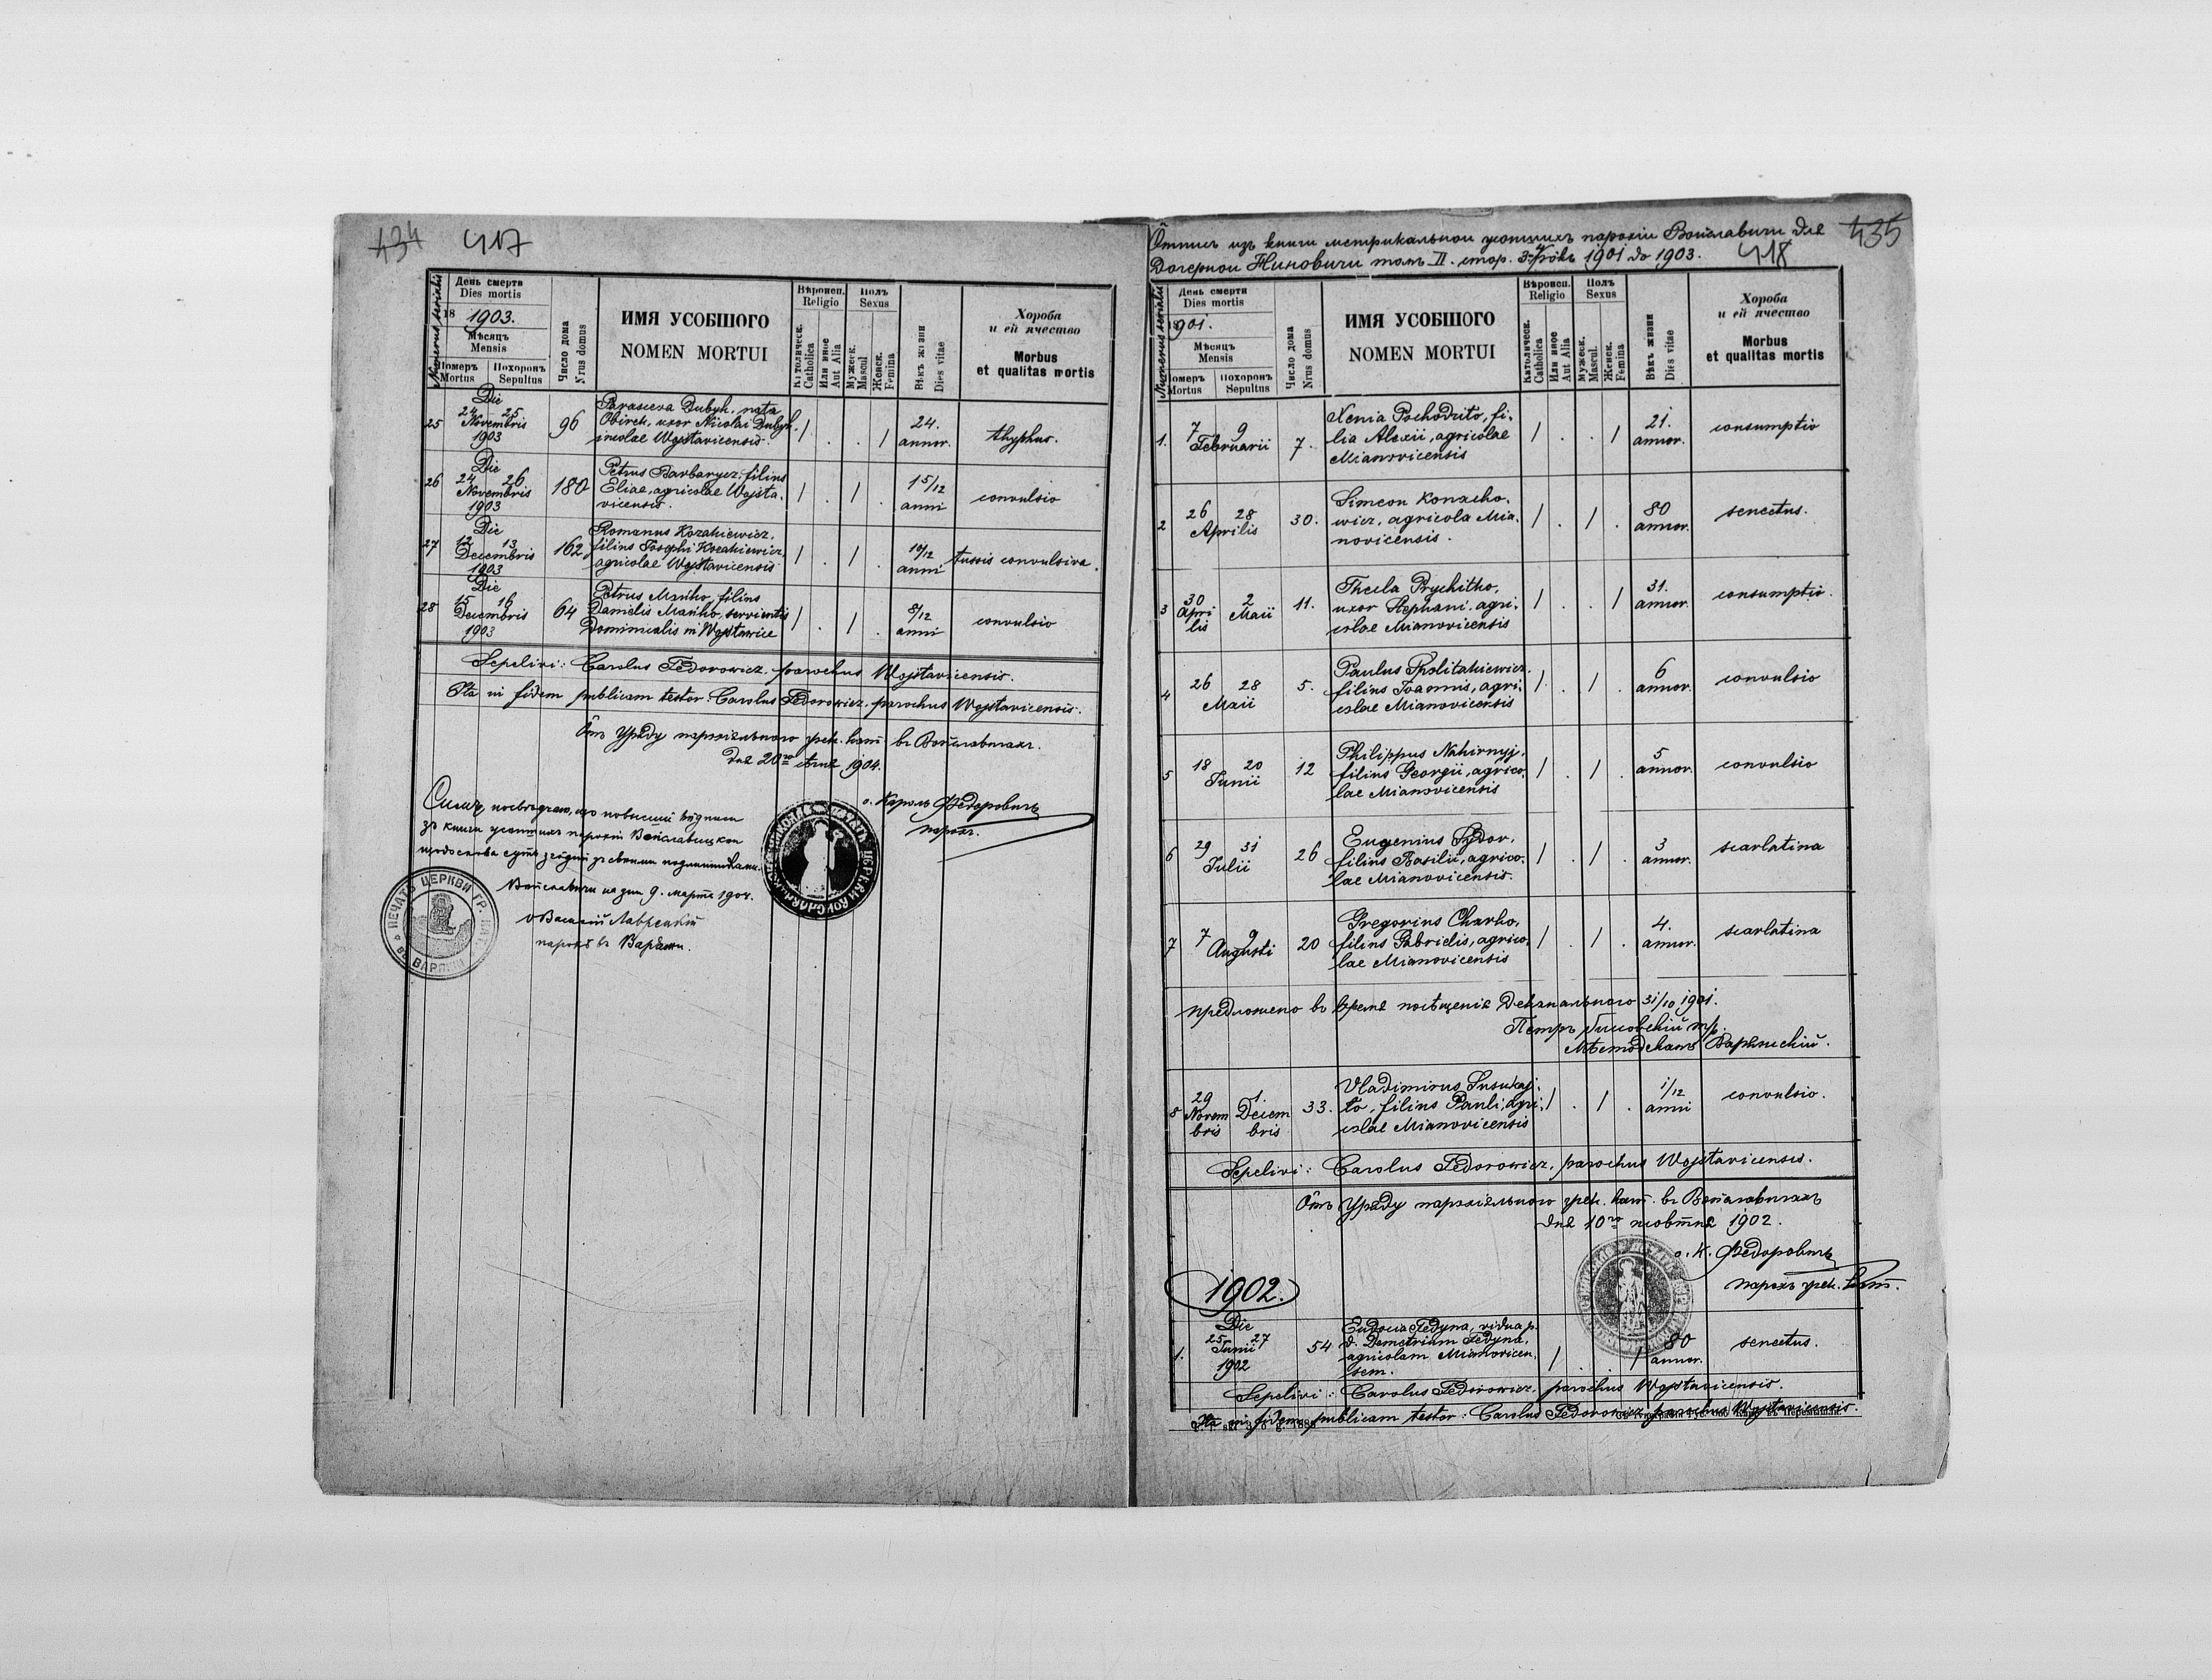 434 417
Numerus serialis
День смерти
Dies mortis
18 1903.
Мѣсяць
Mensis
Номеръ Похоронъ
Mortus Sepultus
Число дома
Nrus domus
ИМЯ УСОБШОГО
NOMEN MORTUI
Вѣроисп.
Religio
Католическ.
Catholica
Или иное
Aut Alia
Полъ
Sexus
Мужеск.
Mascul
Женск.
Femina
Вѣкъ жизни
Dies vitae
Хороба
и ей ячество
Morbus
et qualitas mortis
25 Die 24 25 Novembris 1903 96
Parasceva Dubyk, nata
Obirek, uxor Nicolai Dubyk,
incolae Wojsławicensis.
/ . . / 24. annor. thyphus.
26 Die 24 26 Novembris 1903 180
Petrus Barbarycz, filius
Eliae, agricolae Wojsła-
vicensis.
/ . / . 15/12 anni convulsio
27 Die 12 13 Decembris 1903 162
Romanus Kozakiewicz,
filius Josephi Kozakiewicz,
agricolae Wojsławicensis
/ . / . 10/12 anni tussis convulsiva.
28 Die 15 16 Decembris 1903 64
Petrus Mańko, filius
Danielis Mańko, servientis
Dominicalis in Wojsławice
/ . / . 8/12 anni convulsio
Sepelivi: Carolus Fedorowicz, parochus Wojsławicensis.
Ita in fidem publicam testor: Carolus Fedorowicz, parochus Wojsławicensis.
Ôтъ Уряду парохіяльного грек. кат. въ Войславичахъ.
дня 20го 1904.
о. Кароль Федоровичъ
парохъ.
зъ книги усопшихъ парохіи Войславицкои
Войславичи на дни 9. марта 1904.
о Василій Лаврецкій
парохъ въ Варяжи.
ПЕЧАТЬ ЦЕРКВИ ГР. КАТ. въ ВАРЯЖИ
435
Ôтписъ изъ книги метрикальнои усопшихъ парохіи Войславичи для
Дочернои Миновичи томъ II. стор. 3 рôкъ 1901 до 1903. 418
Numerus serialis
День смерти
Dies mortis
1901.
Мѣсяць
Mensis
Номеръ Похоронъ
Mortus Sepultus
Число дома
Nrus domus
ИМЯ УСОБШОГО
NOMEN MORTUI
Вѣроисп.
Religio
Католическ.
Catholica
Или иное
Aut Alia
Полъ
Sexus
Мужеск.
Mascul.
Женск.
Femina
Вѣкъ жизни
Dies vitae
Хороба
и ей ячество
Morbus
et qualitas mortis
1. 7 9 Februarii 7.
Xenia Pochodziło, fi-
lia Alexii, agricolae
Mianovicensis
/ . . / 21. annor. consumptio
2 26 28 Aprilis 30.
Simeon Konacho-
wicz, agricola Mia-
novicensis.
/ . / . 80 annor. senectus.
3 30 Aprilis 2 Maii 11.
Thecla Prychitko,
uxor Stephani, agri-
colae Mianovicensis
/ . . / 31. annor. consumptio.
4 26 28 Maii 5.
Paulus Politakiewicz,
filius Joannis, agri-
colae Mianovicensis
/ . / . 6 annor. convulsio
5 18 20 Junii 12
Philippus Nahirnyj,
filius Georgii, agrico-
lae Mianovicensis
/ . / . 5 annor. convulsio
6 29 31 Julii 26
Eugenius Sydor,
filius Basilii, agrico-
lae Mianovicensis.
/ . / . 3 annor. scarlatina
7 7 9 Augusti 20
Gregorius Charko,
filius Gabrielis, agrico-
lae Mianovicensis
/ . / . 4. annor. scarlatina
предложено въ время посѣщенія деканального 31/10 1901.
Петръ
Мѣстодеканъ Варяжскій.
8 29 Novembris 1. Decembris 33.
Vladimirus
filius Pauli, agri-
colae Mianovicensis
/ . / . 1/12 anni convulsio.
Sepelivi: Carolus Fedorowicz, parochus Wojsławicensis.
Ôтъ Уряду парохіяльного грек. кат. въ Войславичахъ
дня 10го жовтня 1902.
о. К. Федоровичъ
парохъ грек. кат.
1902.
1. Die 25 27 Junii 1902 54
Eudocia Fedyna, vidua p.
d. Demetrium Fedyna,
agricolam Mianovicen-
sem.
/ . . / 80 annor. senectus.
Sepelivi: Carolus Fedorowicz, parochus Wojsławicensis.
Ita in fidem publicam testor: Carolus Fedorowicz, parochus Wojsławicensis.